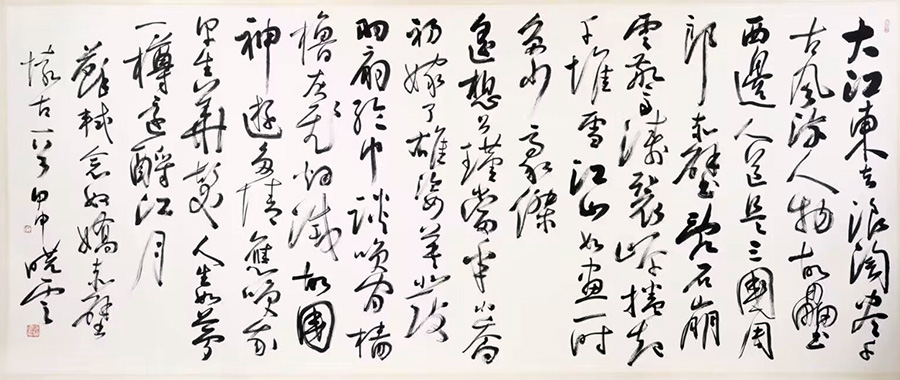 大江東去浪淘盡千
古風流人物故壘
西邊人道是三國周
郎赤壁亂石崩
雲驚濤裂岸捲起
千堆雪江山如畫一時
多少豪傑
遙想公瑾當年小喬
初嫁了雄姿英發
羽扇綸巾談笑間檣
櫓灰飛烟滅故國
神遊多情應笑我
早生華髮人生如夢
一樽還酹江月
蘇軾念奴嬌赤壁
懷古一首甲申曉雲